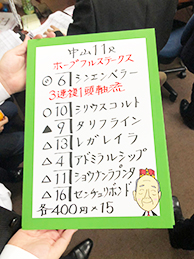 中山11R
ホープフルステークス
◎ 6 シンエンペラー
3連複1頭軸流
○ 10 シリウスコルト
▲ 9 タリフライン
△ 13 レガレイラ
△ 4 アドミラルシップ
△ 11 ショウナンラプンタ
△ 16 センチュリボンド
各400円×15